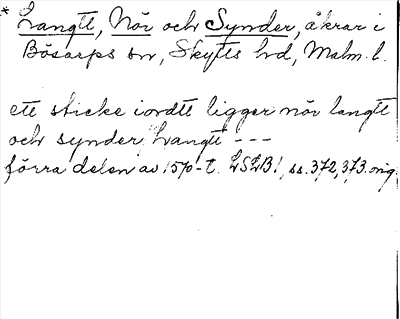 * Langtt, Nör och Synder, åkrar i
Bösarps sn, Skytts hd, Malm. l.
ett sticke iordtt ligger nör langtt
och synder Langtt ---
förra delen av 1570-t. LSLB1, ss. 372, 373. orig.